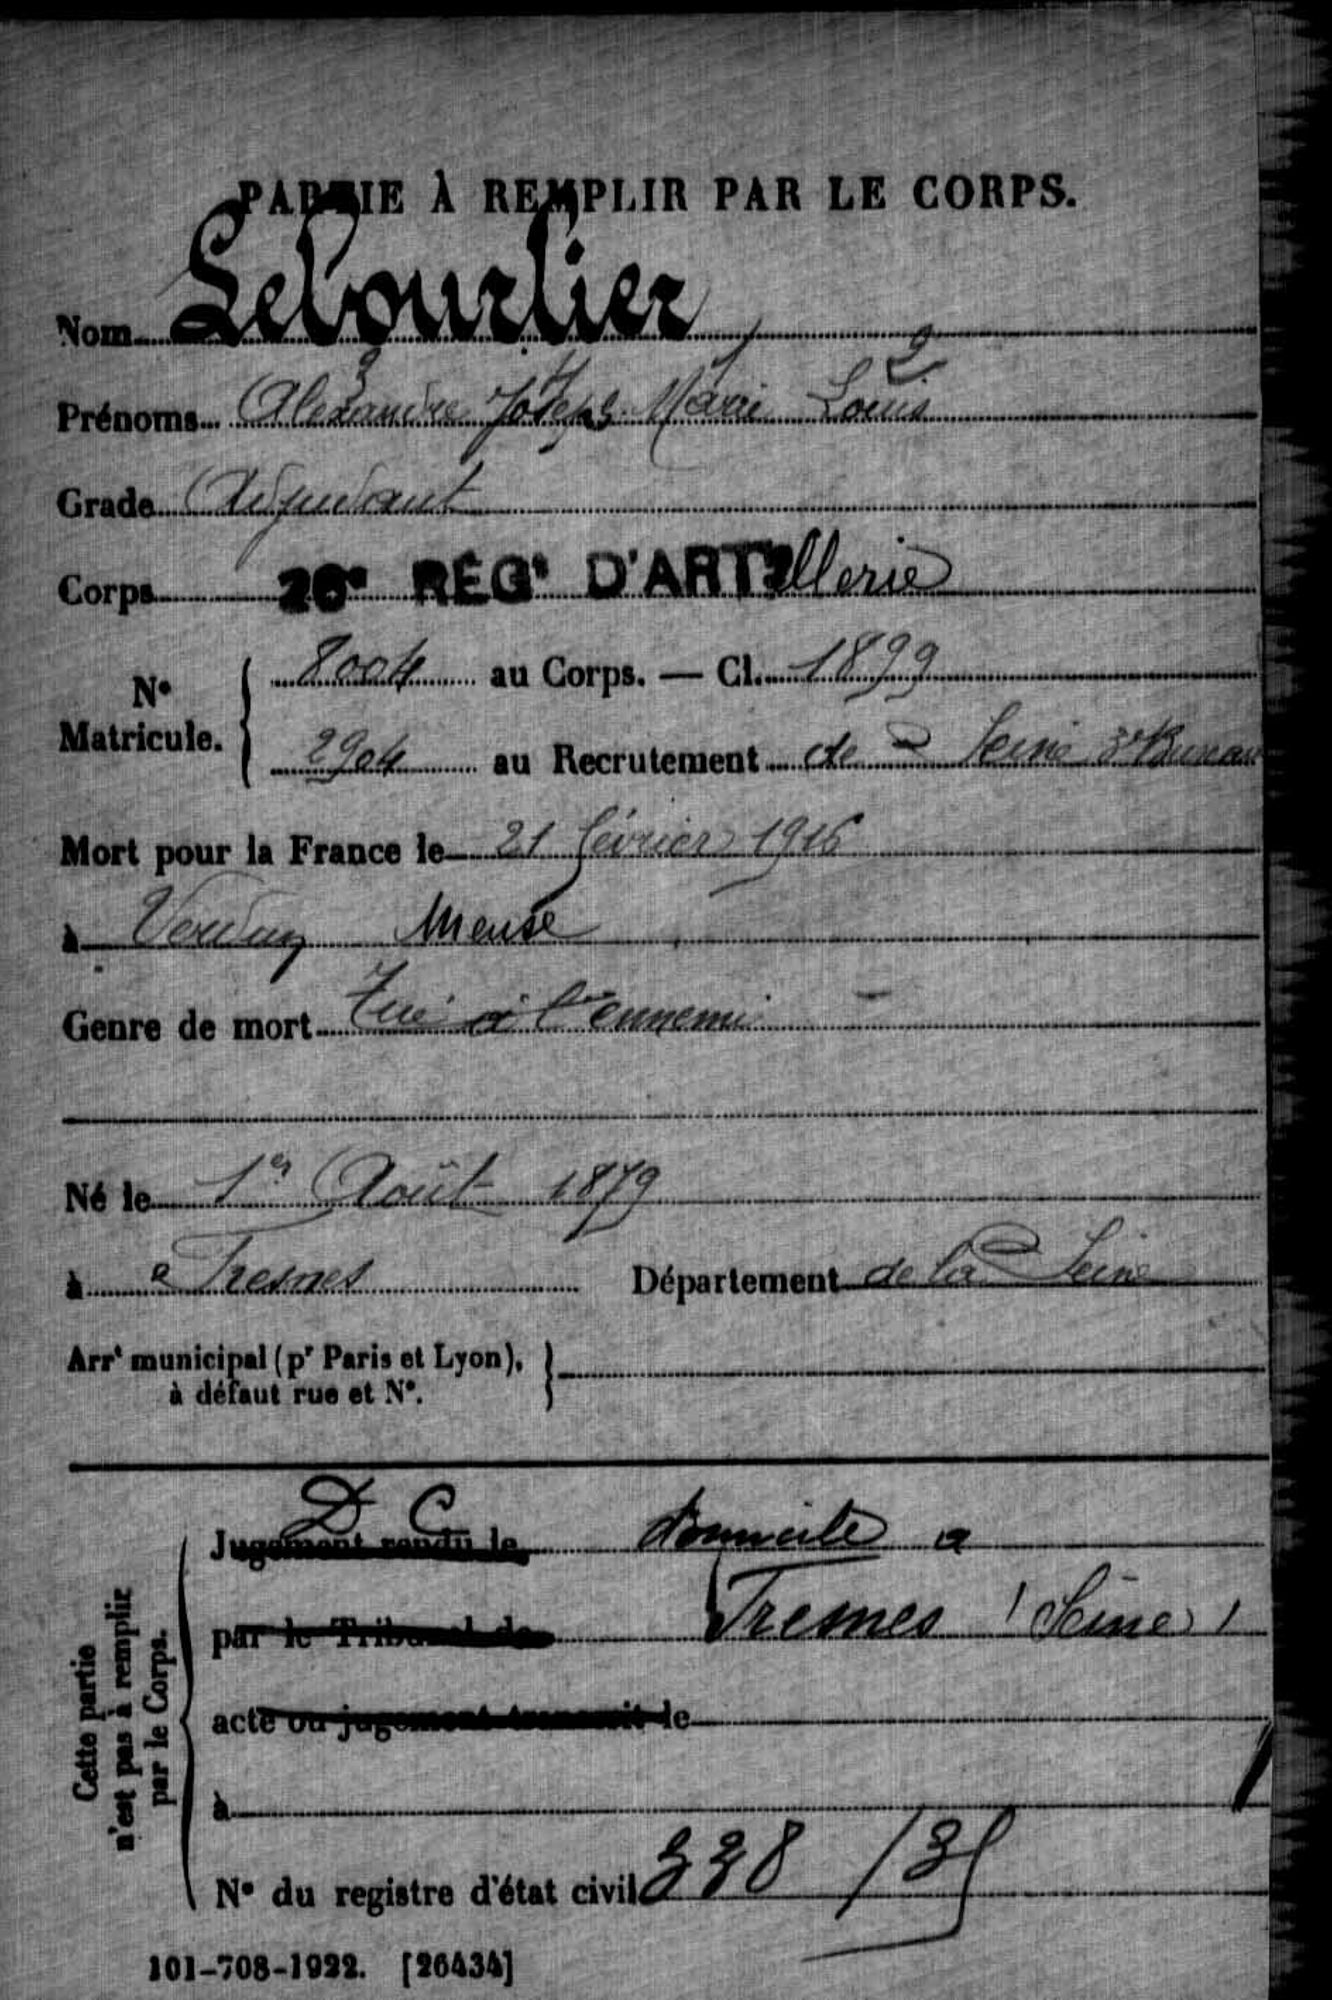 PARTIE À REMPLIR PAR LE CORPS.
Nom Lebourlier
3 4 1 2
Prénoms Alexandre Joseph Marie Louis
Grade Adjudant
Corps 26e RÉGt D'ARTillerie
No Matricule. 8004 au Corps. — Cl. 1899
2904 au Recrutement de Seine 3e Bureau
Mort pour la France le 21 février 1916
à Verdun Meuse
Genre de mort Tué à l'ennemi
Né le 1er Août 1879
à Fresnes Département de la Seine
Arrt municipal (pr Paris et Lyon),
à défaut rue et No.
Cette partie
n'est pas à remplir
par le Corps.
D C
Jugement rendu le domicile a
par le Tribunal de Fresnes (Seine)
acte ou jugement transcrit le
à
No du registre d'état civil 338 /35
101-708-1922. [26434]